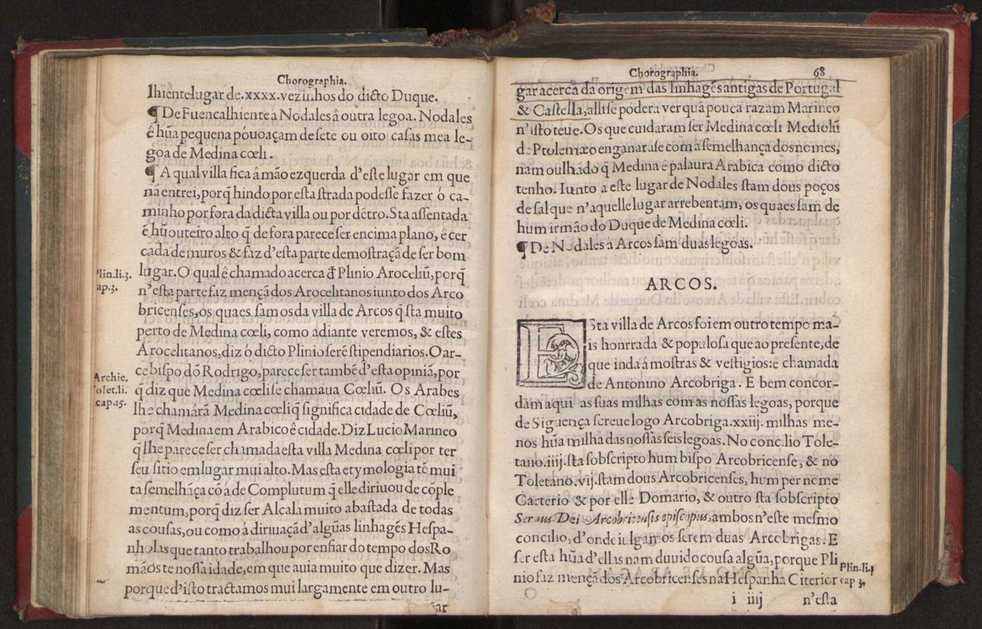 Chorographia.
lhientelugar de.xxxx.vezinhos do dicto Duque.
¶ De Fuencalhiente a Nodales â outra legoa. Nodales
ê hũa pequena pouoaçam de sete ou oito casas mea le-
goa de Medina cœli.
¶ A qual villa fica â mão ezquerda d'este lugar em que
nã entrei, porq̃ hindo por esta strada podesse fazer ò ca-
minho por fora da dicta villa ou por dẽtro. Sta assentada
ê hũ outeiro alto q̃ de fora parece ser encima plano, ê cer
cada de muros & faz d'esta parte demostraçã de ser bom
lugar. O qual ê chamado acerca đ Plinio Aroceliũ, porq̃
Plin.li.3.
cap.3.
n'esta parte faz mençã dos Arocelitanos iunto dos Arco
bricenses, os quaes sam os da villa de Arcos q̃ sta muito
perto de Medina cœli, como adiante veremos, & estes
Arocelitanos, diz ò dicto Plinio serẽ stipendiarios. O ar-
cebispo dõ Rodrigo, parece ser tambẽ d'esta opiniã, por
Archie.
Tolet.li.
cap.15.
q̃ diz que Medina cœli se chamaua Cœliũ. Os Arabes
lhe chamarã Medina cœli q̃ significa cidade de Cœliũ,
porq̃ Medina em Arabico ê cidade. Diz Lucio Marineo
q̃ lhe parece ser chamada esta villa Medina cœli por ter
seu sitio em lugar mui alto. Mas esta etymologia tẽ mui
ta semelhãça cõ â de Complutum q̃ elle diriuou de cõple
mentum, porq̃ diz ser Alcala muito abastada de todas
as cousas, ou como â diriuaçã d'algũas linhagẽs Hespa-
nholas que tanto trabalhou por enfiar do tempo dos Ro
mãos te nossa idade, em que auia muito que dizer. Mas
porque d'isto tractamos mui largamente em outro lu-
gar
Chorographia. 68
gar acerca da origem das linhagẽs antigas de Portugal
& Castella, alli se podera ver quã pouca razam Marineo
n'isto teue. Os que cuidaram ser Medina cœli Mediolũ
de Ptolemæo enganarãse com â semelhança dos nomes,
nam oulhãdo q̃ Medina ê palaura Arabica como dicto
tenho. Iunto a este lugar de Nodales stam dous poços
de sal que n'aquelle lugar arrebentam, os quaes sam de
hum irmão do Duque de Medina cœli.
¶ De Nodales a Arcos sam duas legoas.
ARCOS.
ESta villa de Arcos foi em outro tempo ma-
is honrada & populosa que ao presente, de
que inda á mostras & vestigios: e chamada
de Antonino Arcobriga. E bem concor-
dam aqui as suas milhas com as nossas legoas, porque
de Siguença screue logo Arcobriga.xxiij. milhas me-
nos hũa milha das nossas seis legoas. No concilio Tole-
tano.iiij. sta sobscripto hum bispo Arcobricense, & no
Toletano.vij. stam dous Arcobricenses, hum per nome
Carterio & por elle Domario, & outro sta sobscripto
Seruus Dei Arcobricensis episcopus, ambos n'este mesmo
concilio, d'onde iulgamos serem duas Arcobrigas. E
ser esta hũa d'ellas nam duuido cousa algũa, porque Pli
nio faz mençã dos Arcobricenses na Hespanha Citerior
Plin.li.3
cap 3.
i iiij n'esta